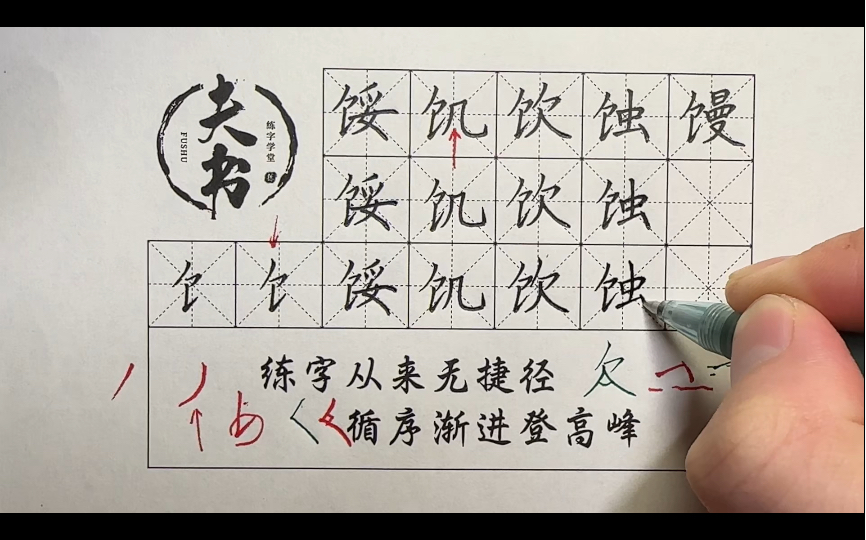 夫书
FUSHU
练字学堂
馁饥饮蚀馒
馁饥饮蚀
饣饣馁饥饮蚀
练字从来无捷径
循序渐进登高峰